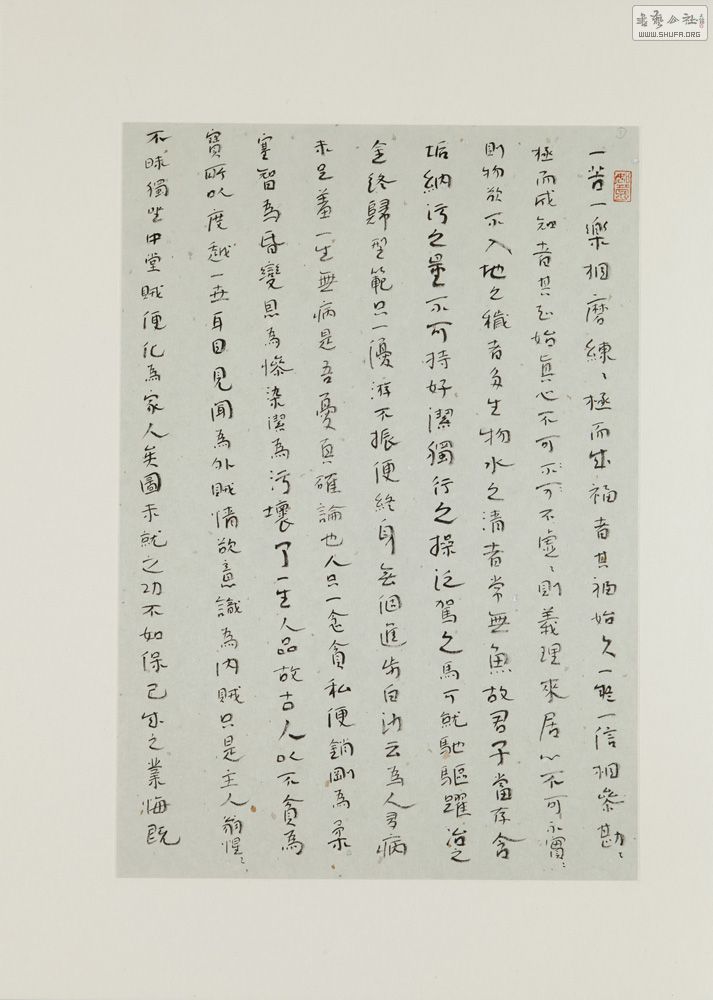 一苦一樂相磨練〻極而成福者其福始久一疑一信相參勘〻
極而成知者其知始真心不可不可不虛〻則義理來居心不可不實〻
則物欲不入地之穢者多生物水之清者常無魚故君子當存含
垢納污之量不可持好潔獨行之操泛駕之馬可就馳驅躍冶之
金終歸型範只一優游不振便終身無個進步白沙云為人多病
未足羞一生無病是吾憂真確論也人只一念貪私便銷剛為柔
塞智為昏變恩為慘染潔為污壞了一生人品故古人以不貪為
寶所以度越一世耳目見聞為外賊情欲意識為內賊只是主人翁惺〻
不昧獨坐中堂賊便化為家人矣圖未就之功不如保已成之業悔既
書藝公社
WWW.SHUFA.ORG